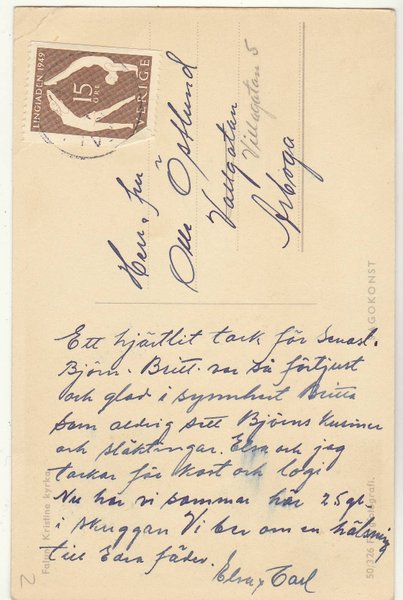 LINGIADEN 1949
15
ÖRE
SVERIGE
Herr o fru
Olle Östlund
Vallgatan
Villagatan 5
Arboga
Ett hjärtlit tack för senast.
Björn. Britt. var så förtjust
och glad i synnerhet Britta
som aldrig sett Björns kusiner
och släktingar. Elsa och jag
tackar för kost och logi
Nu har vi sommar här 25 gr
i skuggan Vi ber om en hälsning
till Edra fäder.
Elsa, Carl
Falun. Kristine kyrka
50/326
AGOKONST
2